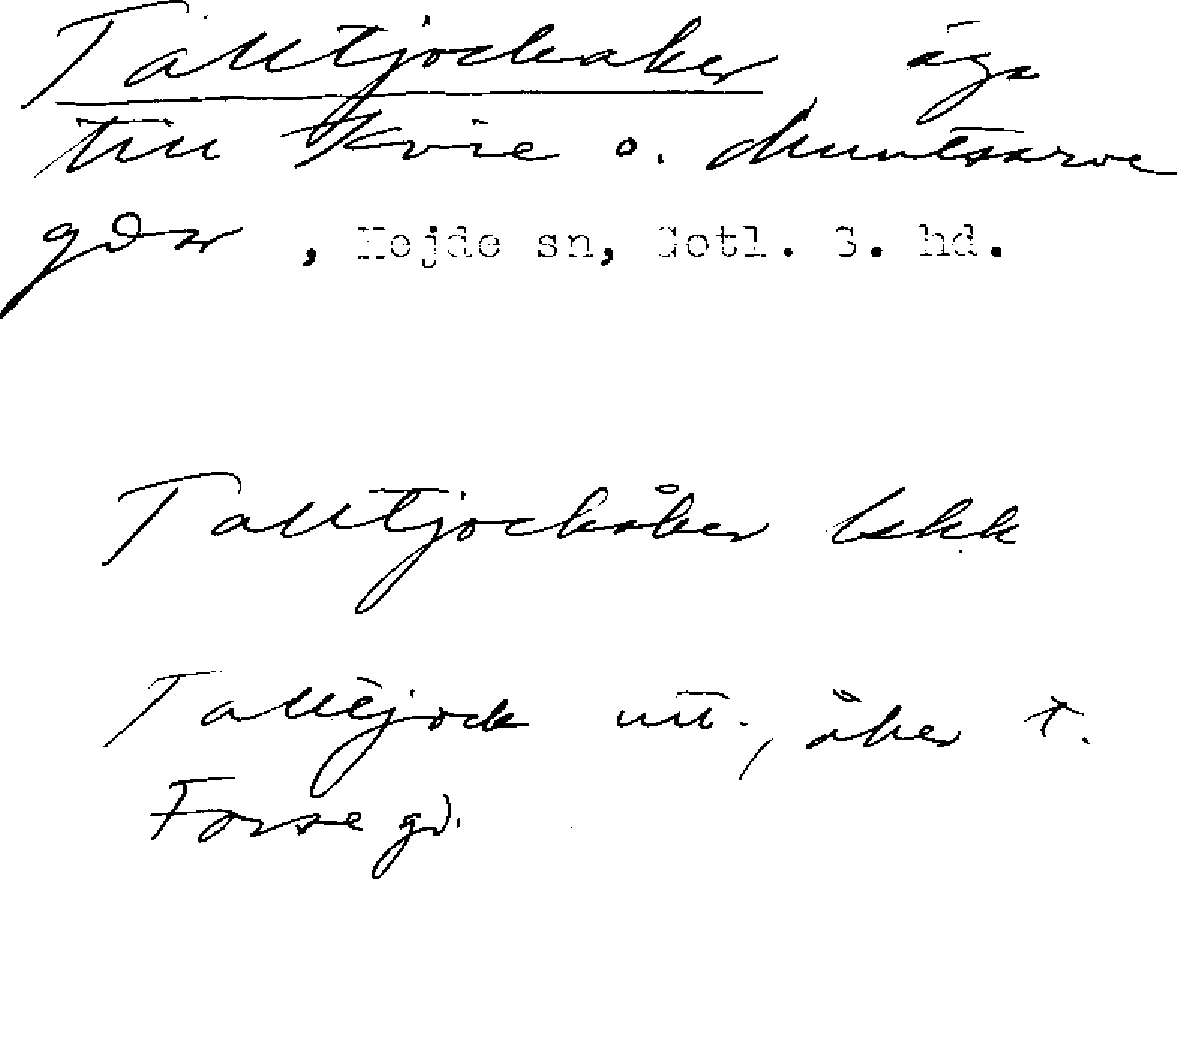 Talltjockaker äga
till Kvie o. Muntsarve
gdar, Hejde sn, Gotl. S. hd.
Talltjockåker Lskk
Talltjock utt., åker t.
Forse gd.